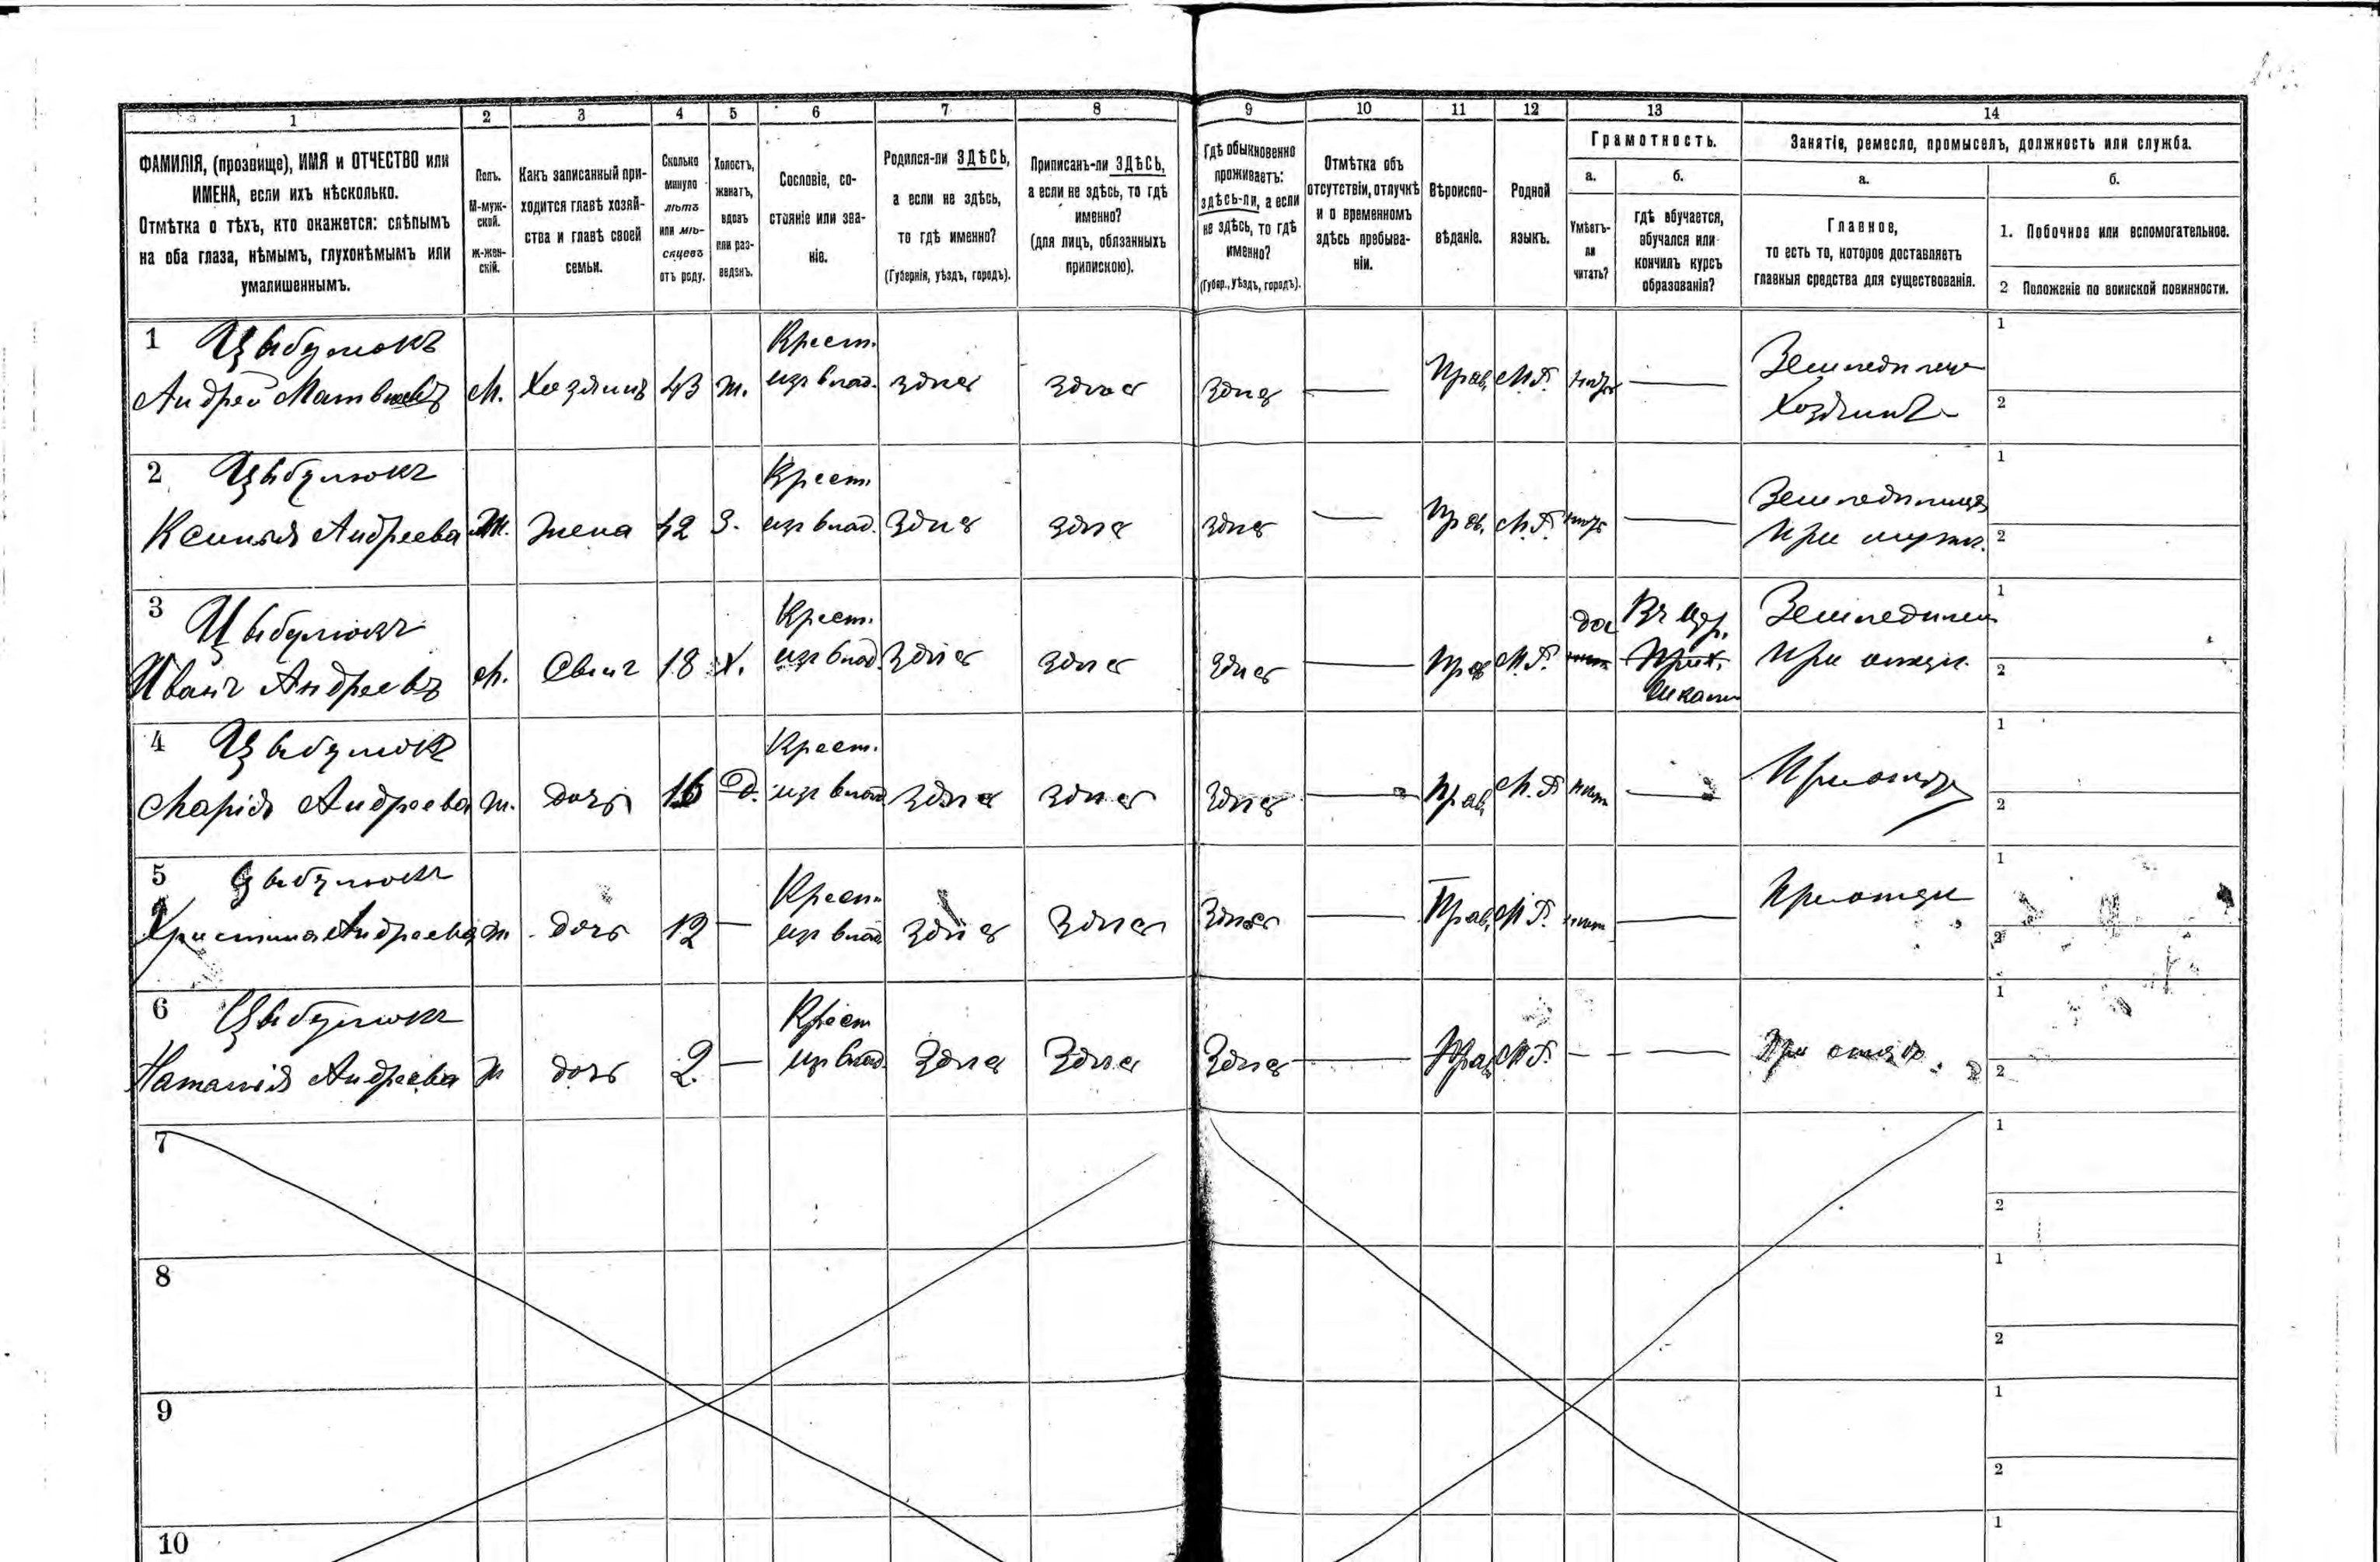 1
2
3
4
5
6
7
8
9
10
11
12
13
14
ФАМИЛІЯ, (прозвище), ИМЯ и ОТЧЕСТВО или
ИМЕНА, если ихъ нѣсколько.
Отмѣтка о тѣхъ, кто окажется: слѣпымъ
на оба глаза, нѣмымъ, глухонѣмымъ или
умалишеннымъ.
Полъ.
М-муж-
ской.
Ж-жен-
скій.
Какъ записанный при-
ходится главѣ хозяй-
ства и главѣ своей
семьи.
Сколько
минуло
лѣтъ
или мѣ-
сяцевъ
отъ роду.
Холостъ,
женатъ,
вдовъ
или раз-
веденъ.
Сословіе, со-
стояніе или зва-
ніе.
Родился-ли ЗДѢСЬ,
а если не здѣсь,
то гдѣ именно?
(Губернія, уѣздъ, городъ).
Приписанъ-ли ЗДѢСЬ,
а если не здѣсь, то гдѣ
именно?
(для лицъ, обязанныхъ
припискою).
Гдѣ обыкновенно
проживаетъ:
здѣсь-ли, а если
не здѣсь, то гдѣ
именно?
(Губер., уѣздъ, городъ).
Отмѣтка объ
отсутствіи, отлучкѣ
и о временномъ
здѣсь пребыва-
ніи.
Вѣроиспо-
вѣданіе.
Родной
языкъ.
Грамотность.
а.
Умѣетъ-
ли
читать?
б.
гдѣ обучается,
обучался или
кончилъ курсъ
образованія?
Занятіе, ремесло, промыселъ, должность или служба.
а.
Главное,
то есть то, которое доставляетъ
главныя средства для существованія.
б.
1. Побочное или вспомогательное.
2 Положеніе по воинской повинности.
1 Цыбулюкъ
Андрей Матвѣевъ
М. Хозяинъ 43 ж.
Крест.
изъ влад. здѣсь здѣсь здѣсь — Прав. М.Р. нѣтъ —
Земледѣлец
Хозяинъ
1
2
2 Цыбулюкъ
Ксенія Андреева
Ж. Жена 42 З.
Крест.
изъ влад. Здѣсь здѣсь здѣсь — Прав. М.Р. нѣтъ —
Земледѣлица
При мужѣ.
1
2
3 Цыбулюкъ
Иванъ Андреевъ
М. Сынъ 18 Х.
Крест.
изъ влад. Здѣсь здѣсь здѣсь — Прав М.Р.
да
Въ Цер.
Прих.
Школѣ
Земледѣлец
При отцѣ.
1
2
4 Цыбулюкъ
Марія Андреева
ж. дочь 16 Д.
Крест.
изъ влад Здѣсь здѣсь здѣсь — Прав. М.Р нѣтъ —
При отцѣ
1
2
5 Цыбулюкъ
Христина Андреева
ж дочь 12 —
Крест.
изъ влад Здѣсь Здѣсь Здѣсь — Прав. М.Р. нѣтъ —
При отцѣ
1
2
6 Цыбулюкъ
Наталія Андреева
ж дочь 2. —
Крест
изъ влад. Здѣсь Здѣсь Здѣсь — Прав. М.Р. — —
При отцѣ.
1
2
7
1
2
8
1
2
9
1
2
10
1